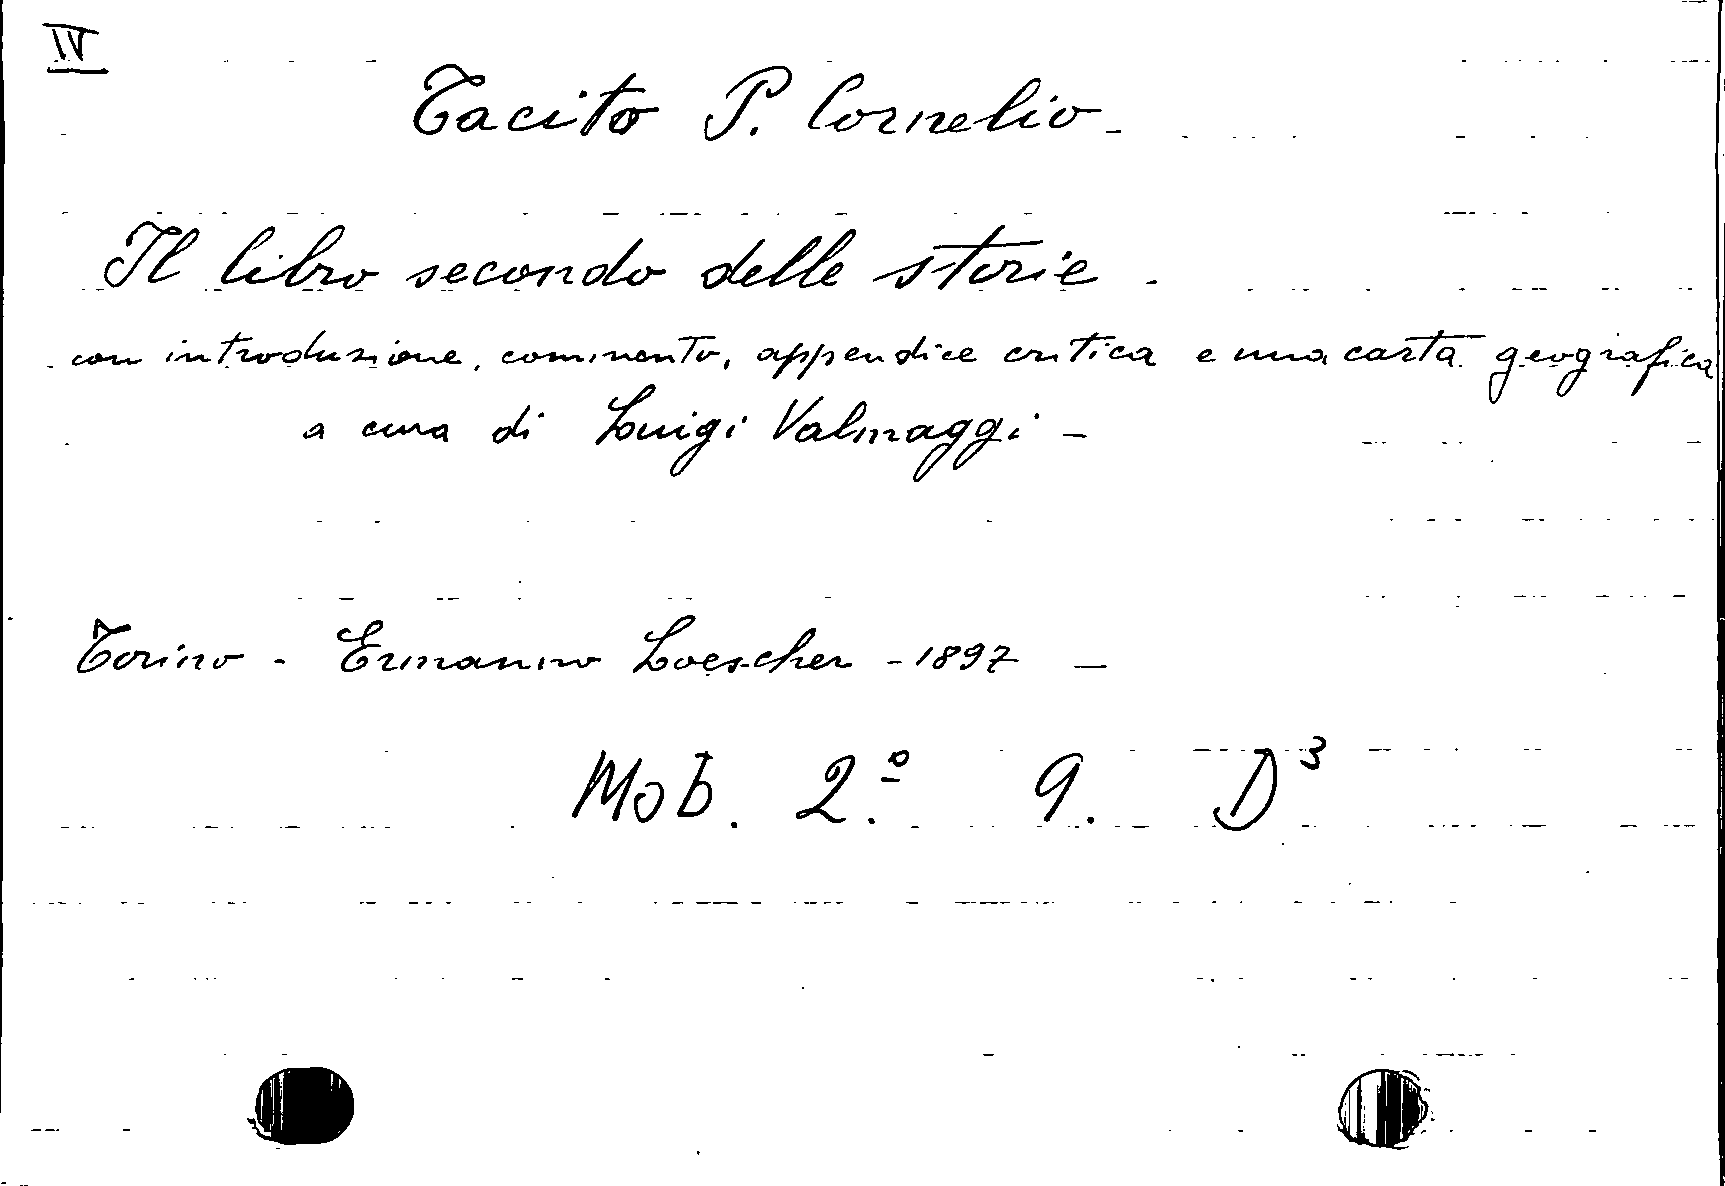 IV
Tacito P. Cornelio -
Il libro secondo delle storie -
con introduzione, commento, appendice critica e una carta geografica
a cura di Luigi Valmaggi -
Torino - Ermanno Loescher - 1897 -
Mob. 2.º 9. D³